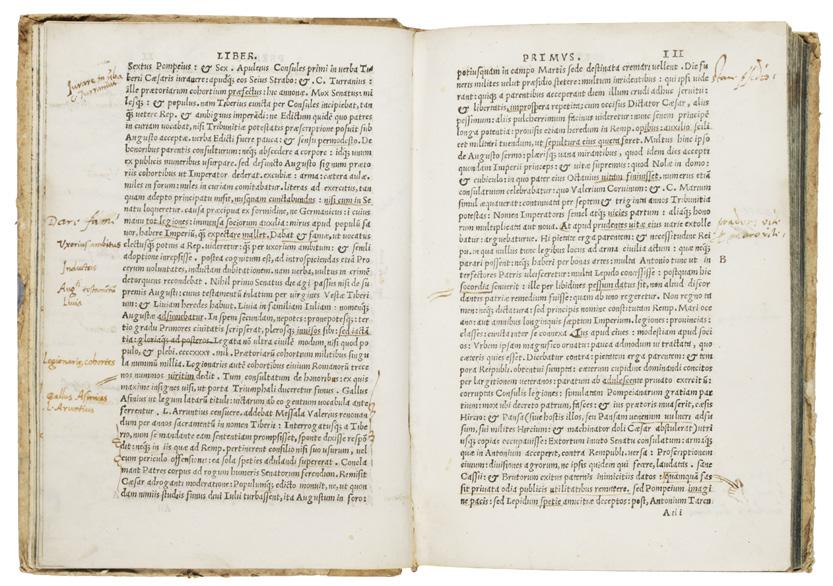 LIBER.
Sextus Pompeius: & Sex. Apuleius Consules primi in verba Ti
berii Cæsaris iurauere: apudq; eos Seius Strabo: & .C. Turranius:
ille prætoriarum cohortium præfectus: hic annonæ. Mox Senatus: mi
lesq;: & populus. nam Tiberius cuncta per Consules incipiebat, tan
q; uetere Rep. & ambiguus imperãdi: ne Edictum quidẽ quo patres
in curiam vocabat, nisi Tribunitiæ potestatis præscriptione posuit sub
Augusto acceptæ. verba Edicti fuere pauca: & sensu permodesto. De
honoribus parentis consulturum: neq; abscedere a corpore: idq; unum
ex publicis muneribus usurpare. sed defuncto Augusto signum præto
riis cohortibus ut Imperator dederat. excubiæ: arma: cætera aulæ.
miles in forum: miles in curiam comitabatur. literas ad exercitus, tan
quam adepto principatu misit, nusquam cunctabundus: nisi cum in Se
natu loqueretur. causa præcipua ex formidine, ne Germanicus: in cuius
manu tot legiones: immensa sociorum auxilia: mirus apud populũ fa
uor, habere Imperiũ, q; expectare mallet. Dabat & famæ, ut vocatus
electusq; potius a Rep. videretur: q; per uxorium ambitum: & senili
adoptione irrepsisse. postea cognitum est, ad introspiciendas etiã Pro
cerum voluntates, inductam dubitationem. nam verba, vultus in crimẽ
detorquens recondebat. Nihil primo Senatus die agi passus nisi de su
premis Augusti: cuius testamentũ inlatum per virgines Vestæ Tiberi
um: & Liuiam heredes habuit. Liuia in familiam Iuliam: nomenq;
Augustæ adsumebatur. In spem secundam, nepotes: pronepotesq;: ter
tio gradu Primores ciuitatis scripserat, plerosq; inuisos sibi: sed iactã
tia: gloriaq; ad posteros. Legata nõ ultra ciuilẽ modum, nisi quod po
pulo, & plebi
Prætoriarũ cohortum militibus singu
la nummũ millia. Legionariis autẽ cohortibus ciuium Romanorũ trece
nos nummos viritim dedit. Tum consultatum de honoribus: ex quis
maxime insignes visi, ut porta Triumphali duceretur funus. Gallus
Asinius ut legum latarũ tituli: victarum ab eo gentium vocabula ante
ferrentur. L. Arruntius censuere. addebat Messala Valerius renouan
dum per annos sacramentũ in nomen Tiberii: Interrogatusq; a Tibe
rio, num se mandante eam sententiam prompsisset, sponte dixisse respõ
dit: neq; in iis quæ ad Remp. pertinerent consilio nisi suo usurum, vel
cum periculo offensionis: ea sola species adulandi supererat. Concla
mant Patres corpus ad rogum humeris Senatorum ferendum. Remisit
Cæsar adroganti moderatione: Populumq; edicto monuit, ne, ut quon
dam nimiis studiis funus diui Iulii turbassent, ita Augustum in foro:
Iurare in verba
Turranius
Dare famæ
Uxorius ambitus
Inductus
Augti testamentũ
Liuia
Legionariæ cohortes
Gallus Asinius
L. Arruntius
PRIMVS. III
potiusquam in campo Martis sede destinata cremari vellent. Die fu
neris milites velut præsidio stetere: multum inridentibus: qui ipsi vide
rant: quiq; a parentibus acceperant diem illum crudi adhuc seruitii:
& libertatis, improspera repetita: cum occisus Dictator Cæsar, aliis
pessimum: aliis pulcerrimum facinus videretur: nunc senem principẽ
longa potentia: prouisis etiam heredum in Remp. opibus: auxilio scili
cet militari tuendum, ut sepultura eius quieta foret. Multus hinc ipso
de Augusto sermo: plærisq; vana mirantibus, quod idem dies accepti
quondam Imperii princeps: & vitæ supremus: quod Nolæ in domo:
& cubiculo: in quo pater eius Octauius vitam finiuisset, numerus etiã
consulatuum celebrabatur: quo Valerium Coruinum: & .C. Marium
simul æquauerat: continuata per septem & triginta annos Tribunitia
potestas: Nomen Imperatoris semel atq; vicies partum: aliaq; hono
rum multiplicata aut noua. At apud prudentes vita eius varie extolle
batur: arguebaturue. Hi pietate erga parentem: & necessitudine Rei
pu. in qua nullus tunc legibus locus ad arma ciuilia actum: quæ neq;
parari possent: neq; haberi per bonas artes: multa Antonio tunc ut in
terfectores Patris ulcisceretur: multa Lepido concessisse: postquam hic
socordia senuerit: ille per libidines pessum datus sit, non aliud discor
dantis patriæ remedium fuisse: quam ab uno regeretur. Non regno ta
men: neq; dictatura: sed principis nomine constitutam Remp. Mari oce
ano: aut amnibus longinquis sæptum Imperium. legiones: prouincias:
classes: cuncta inter se connexa. Ius apud ciues: modestiam apud soci
os: Vrbem ipsam magnifico ornatu: pauca admodum vi tractata, quo
cæteris quies esset. Dicebatur contra: pietatem erga parentem: & tem
pora Reipubli. obtentui sumpta: cæterum cupidine dominandi concitos
per largitionem veteranos: paratum ab adulescente priuato exercitũ:
corruptas Consulis legiones: simulatam Pompeianarum gratiam par
tium: mox ubi decreto patrum, fasces: & ius prætoris inuaserit, cæsis
Hircio: & Pansa (siue hostis illos, seu Pansam uenenum vulneri adfu
sum, sui milites Hircium: & machinator doli Cæsar abstulerat) utri
usq; copias occupauisse: Extortum inuito Senatu consulatum: armaq;
quæ in Antonium acceperit, contra Rempubli. versa: Proscriptionem
ciuium: diuisiones agrorum, ne ipsis quidem qui fecere, laudatas. sane
Cassii: & Brutorum exitus paternis inimicitiis datos: quanquã fas
sit priuata odia publicis utilitatibus remittere. sed Pompeium imagi
ne pacis: sed Lepidum specie amicitiæ deceptos: post, Antonium Taren
A iii
B